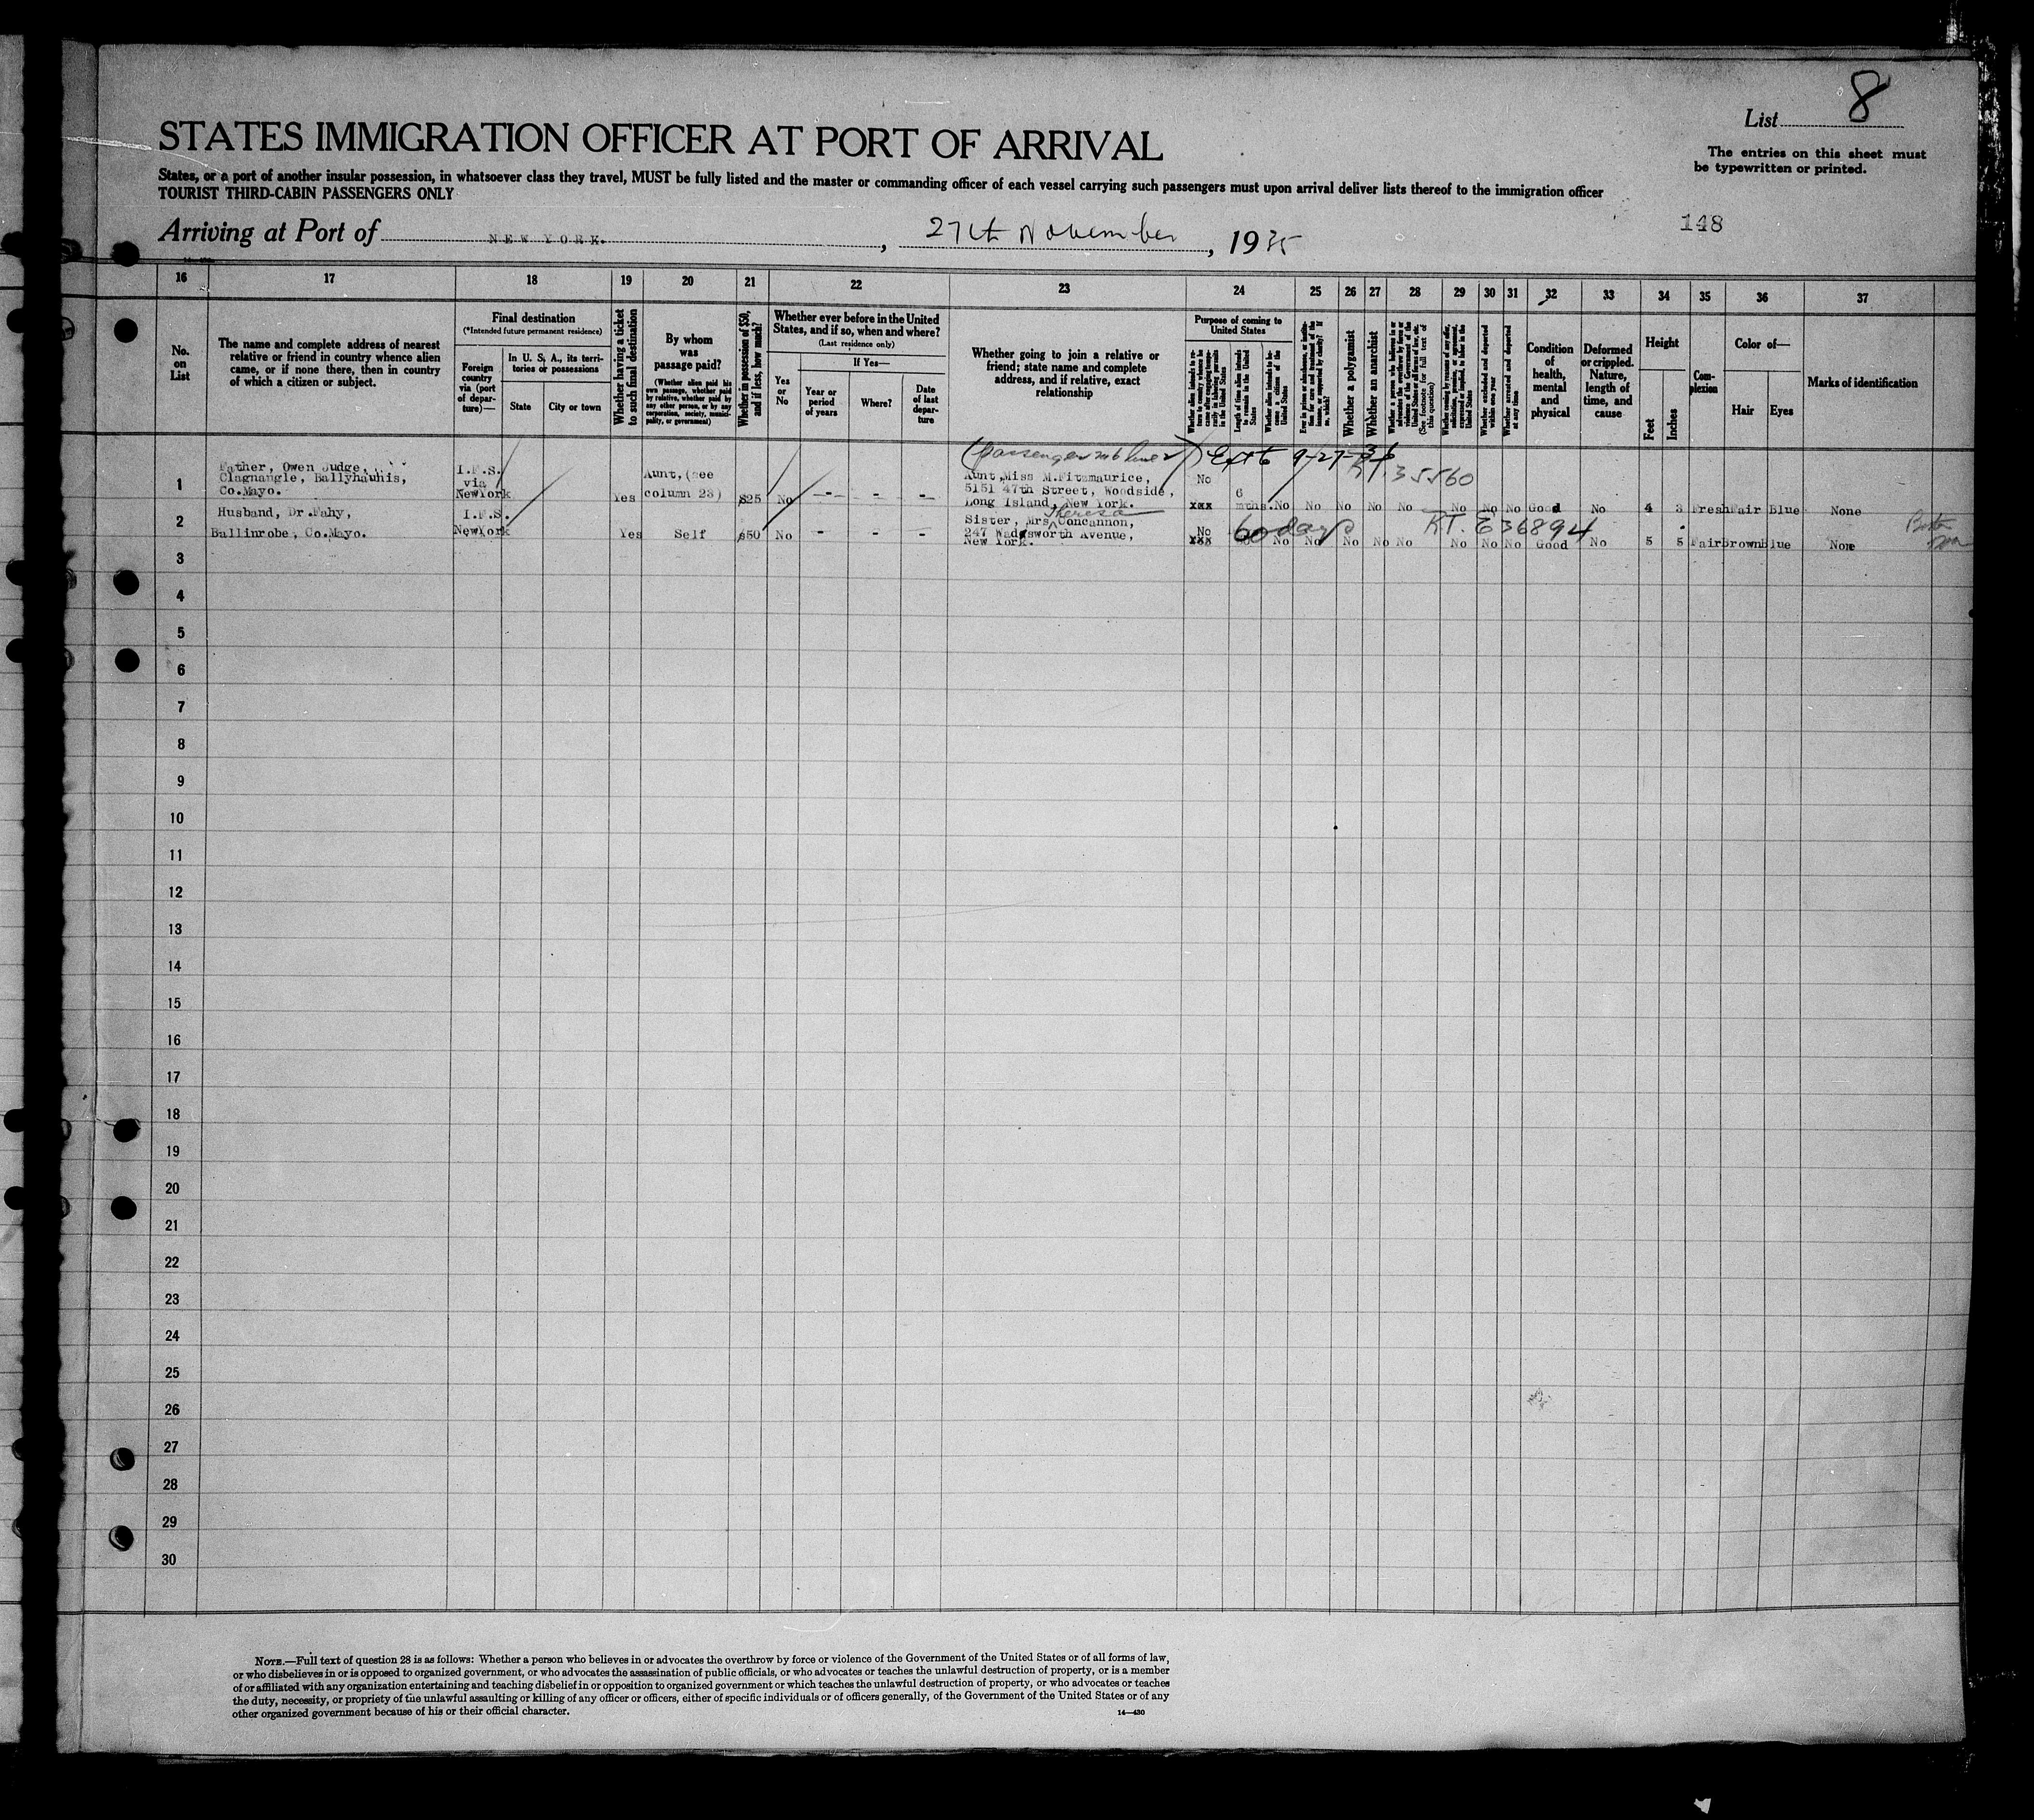 List 8
STATES IMMIGRATION OFFICER AT PORT OF ARRIVAL
The entries on this sheet must
be typewritten or printed.
States, or a port of another insular possession, in whatsoever class they travel, MUST be fully listed and the master or commanding officer of each vessel carrying such passengers must upon arrival deliver lists thereof to the immigration officer
TOURIST THIRD-CABIN PASSENGERS ONLY
148
Arriving at Port of NEW YORK. , 27th November , 1935
16 17 18 19 20 21 22 23 24 25 26 27 28 29 30 31 32 33 34 35 36 37
No.
on
List
The name and complete address of nearest
relative or friend in country whence alien
came, or if none there, then in country
of which a citizen or subject.
Final destination
(*Intended future permanent residence)
Foreign
country
via (port
of depar-
ture)—
In U. S. A., its terri-
tories or possessions
State
City or town
Whether having a ticket
to such final destination
By whom
was
passage paid?
(Whether alien paid his
own passage, whether paid
by relative, whether paid by
any other person, or by any
corporation, society, munici-
pality, or government)
Whether in possession of $50,
and if less, how much?
Whether ever before in the United
States, and if so, when and where?
(Last residence only)
If Yes—
Yes
or
No
Year or
period
of years
Where?
Date
of last
depar-
ture
Whether going to join a relative or
friend; state name and complete
address, and if relative, exact
relationship
Purpose of coming to
United States
Length of time alien intends
to remain in the United
States
Whether alien intends to be-
come a citizen of the
United States
Whether a polygamist
Whether an anarchist
(See footnote for full text of
this question)
Whether arrested and deported
at any time
Condition
of
health,
mental
and
physical
Deformed
or crippled.
Nature,
length of
time, and
cause
Height
Feet
Inches
Com-
plexion
Color of—
Hair
Eyes
Marks of identification
1
Father, Owen Judge,
Clagnangle, Ballyhaunis,
Co.Mayo.
I.F.S.
via
NewYork
Yes
Aunt, (see
column 23)
$25
No - - -
Aunt, Miss M.Fitzmaurice,
5151 47th Street, Woodside,
Long Island, New York.
No
xxx
6
mths. No No No No No No No No Good No 4 3 Fresh Fair Blue None
35560
2
Husband, Dr.Fahy,
Ballinrobe, Co.Mayo.
I.F.S.
NewYork
Yes Self $50 No - - -
Theresa
Sister, Mrs Concannon,
247 Wadsworth Avenue,
New York.
No
xxx
60 days
No No No No No No No No Good No 5 5 Fair Brown Blue None
3
4
5
6
7
8
9
10
11
12
13
14
15
16
17
18
19
20
21
22
23
24
25
26
27
28
29
30
NOTE.—Full text of question 28 is as follows: Whether a person who believes in or advocates the overthrow by force or violence of the Government of the United States or of all forms of law,
or who disbelieves in or is opposed to organized government, or who advocates the assassination of public officials, or who advocates or teaches the unlawful destruction of property, or is a member
of or affiliated with any organization entertaining and teaching disbelief in or opposition to organized government or which teaches the unlawful destruction of property, or who advocates or teaches
the duty, necessity, or propriety of the unlawful assaulting or killing of any officer or officers, either of specific individuals or of officers generally, of the Government of the United States or of any
other organized government because of his or their official character.
14—430